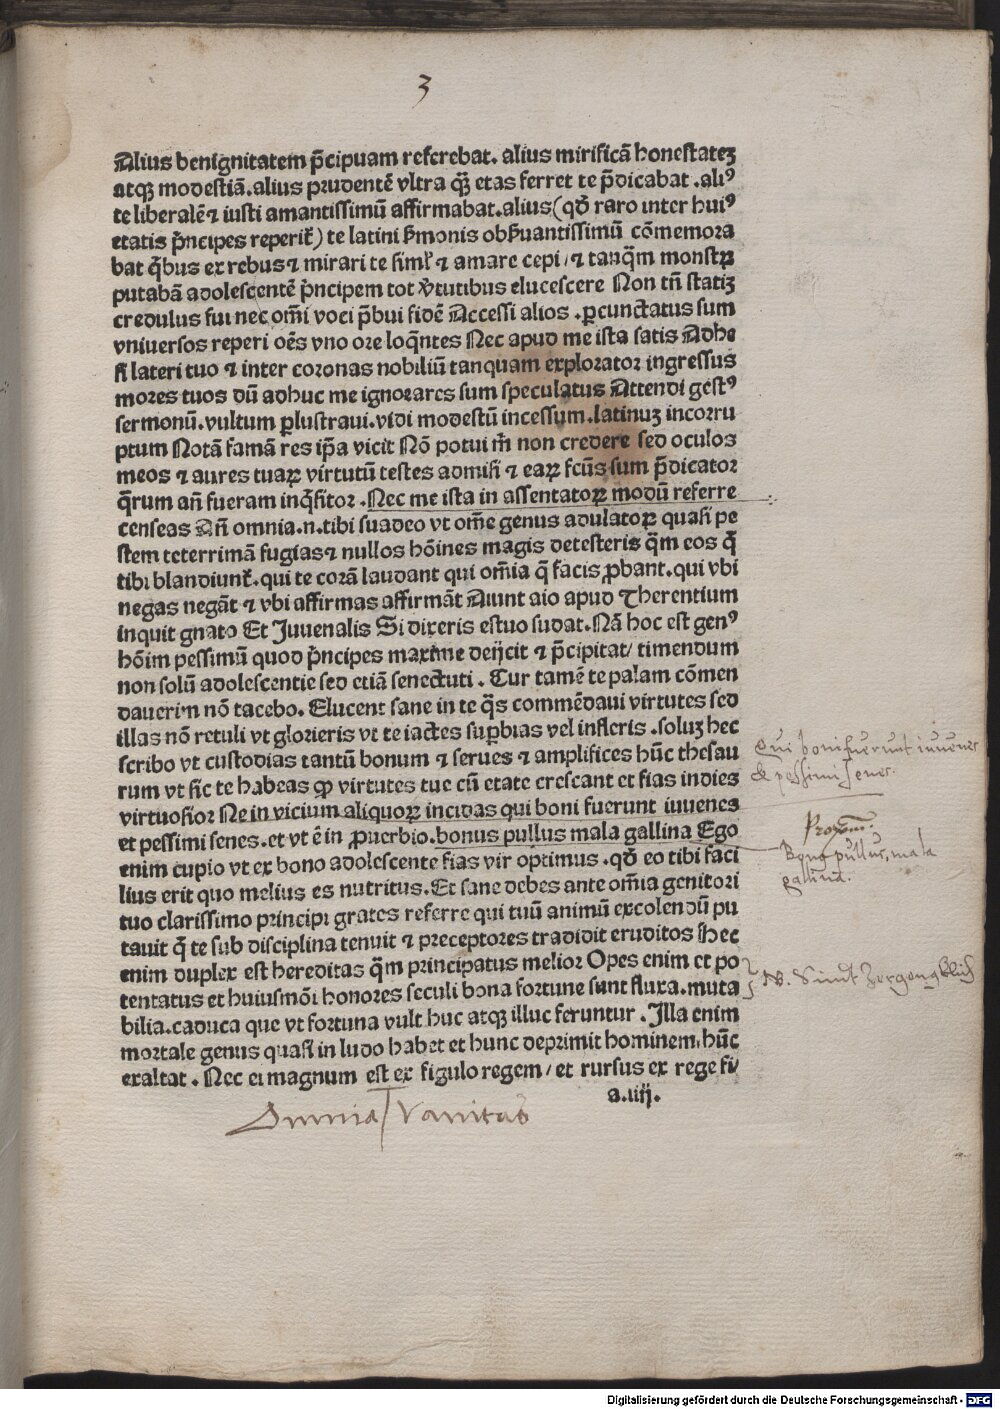 3
Alius benignitatem p̄cipuam referebat. alius mirificā honestateꝫ
atqꝫ modestiā. alius prudentē vltra qꝫ̄ etas ferret te p̄dicabat .aliꝰ
te liberalē ⁊ iusti amantissimū affirmabat. alius (qd̄ raro inter huiꝰ
etatis p̄ncipes reperit̄) te latini s̄monis obs̄uantissimū cōmemora
bat q̄bus ex rebus ⁊ mirari te siml̄ ⁊ amare cepi / ⁊ tanq̄m monstꝝ
putabā adolescentē p̄ncipem tot v̄tutibus elucescere Non tn̄ statiꝫ
credulus fui nec om̄i voci p̄bui fidē Accessi alios . ꝑcunctatus sum
vniuersos reperi oēs vno ore loq̄ntes Nec apud me ista satis Adhe
si lateri tuo ⁊ inter coronas nobiliū tanquam explorator ingressus
mores tuos dū adhuc me ignorares sum speculatus Attendi gestꝰ
sermonū. vultum ꝑlustraui. vidi modestū incessum. latinuꝫ incorru
ptum Notā famā res ip̄a vicit Nō potui m̄ non credere sed oculos
meos ⁊ aures tuaꝝ virtutū testes admisi ⁊ eaꝝ fcūs sum p̄dicator
q̄rum an̄ fueram inq̄sitor . Nec me ista in assentatoꝝ modū referre
censeas An̄ omnia .n. tibi suadeo vt om̄e genus adulatoꝝ quasi pe
stem teterrimā fugias ⁊ nullos hōines magis detesteris q̄m eos q̄
tibi blandiunt̄. qui te corā laudant qui om̄ia q̄ facis ꝓbant. qui vbi
negas negāt ⁊ vbi affirmas affirmāt Aiunt aio apud Therentium
inquit gnato Et Iuuenalis Si dixeris estuo sudat. Nā hoc est genꝰ
hōim pessimū quod p̄ncipes maxime deijcit ⁊ p̄cipitat / timendum
non solū adolescentie sed etiā senectuti . Cur tamē te palam cōmen
dauerim nō tacebo. Elucent sane in te q̄s commēdaui virtutes sed
illas nō retuli vt glorieris vt te iactes suꝑbias vel infleris . soluꝫ hec
scribo vt custodias tantū bonum ⁊ serues ⁊ amplifices hūc thesau
rum vt sic te habeas ꝙ virtutes tue cū etate crescant et fias indies
virtuosior Ne in vicium aliquoꝝ incidas qui boni fuerunt iuuenes
et pessimi senes. et vt ē in ꝓuerbio. bonus pullus mala gallina Ego
enim cupio vt ex bono adolescente fias vir optimus . qd̄ eo tibi faci
lius erit quo melius es nutritus. Et sane debes ante om̄ia genitori
tuo clarissimo principi grates referre qui tuū animū excolendū pu
tauit q̄ te sub disciplina tenuit ⁊ preceptores tradidit eruditos Hec
enim duplex est hereditas q̄m principatus melior Opes enim et po
tentatus et huiusmōi honores seculi bona fortune sunt fluxa. muta
bilia. caduca que vt fortuna vult huc atqꝫ illuc feruntur . Illa enim
mortale genus quasi in ludo habet et hunc deprimit hominem. hūc
exaltat . Nec ei magnum est ex figulo regem / et rursus ex rege fi/
a.iiij.
Qui boni fuerunt iuuenes
& pessimi senes.
Bonꝰ pullus, mala
gallina.
N. Sindt Zergengklich
Omnia Vanitas
Digitalisierung gefördert durch die Deutsche Forschungsgemeinschaft - DFG